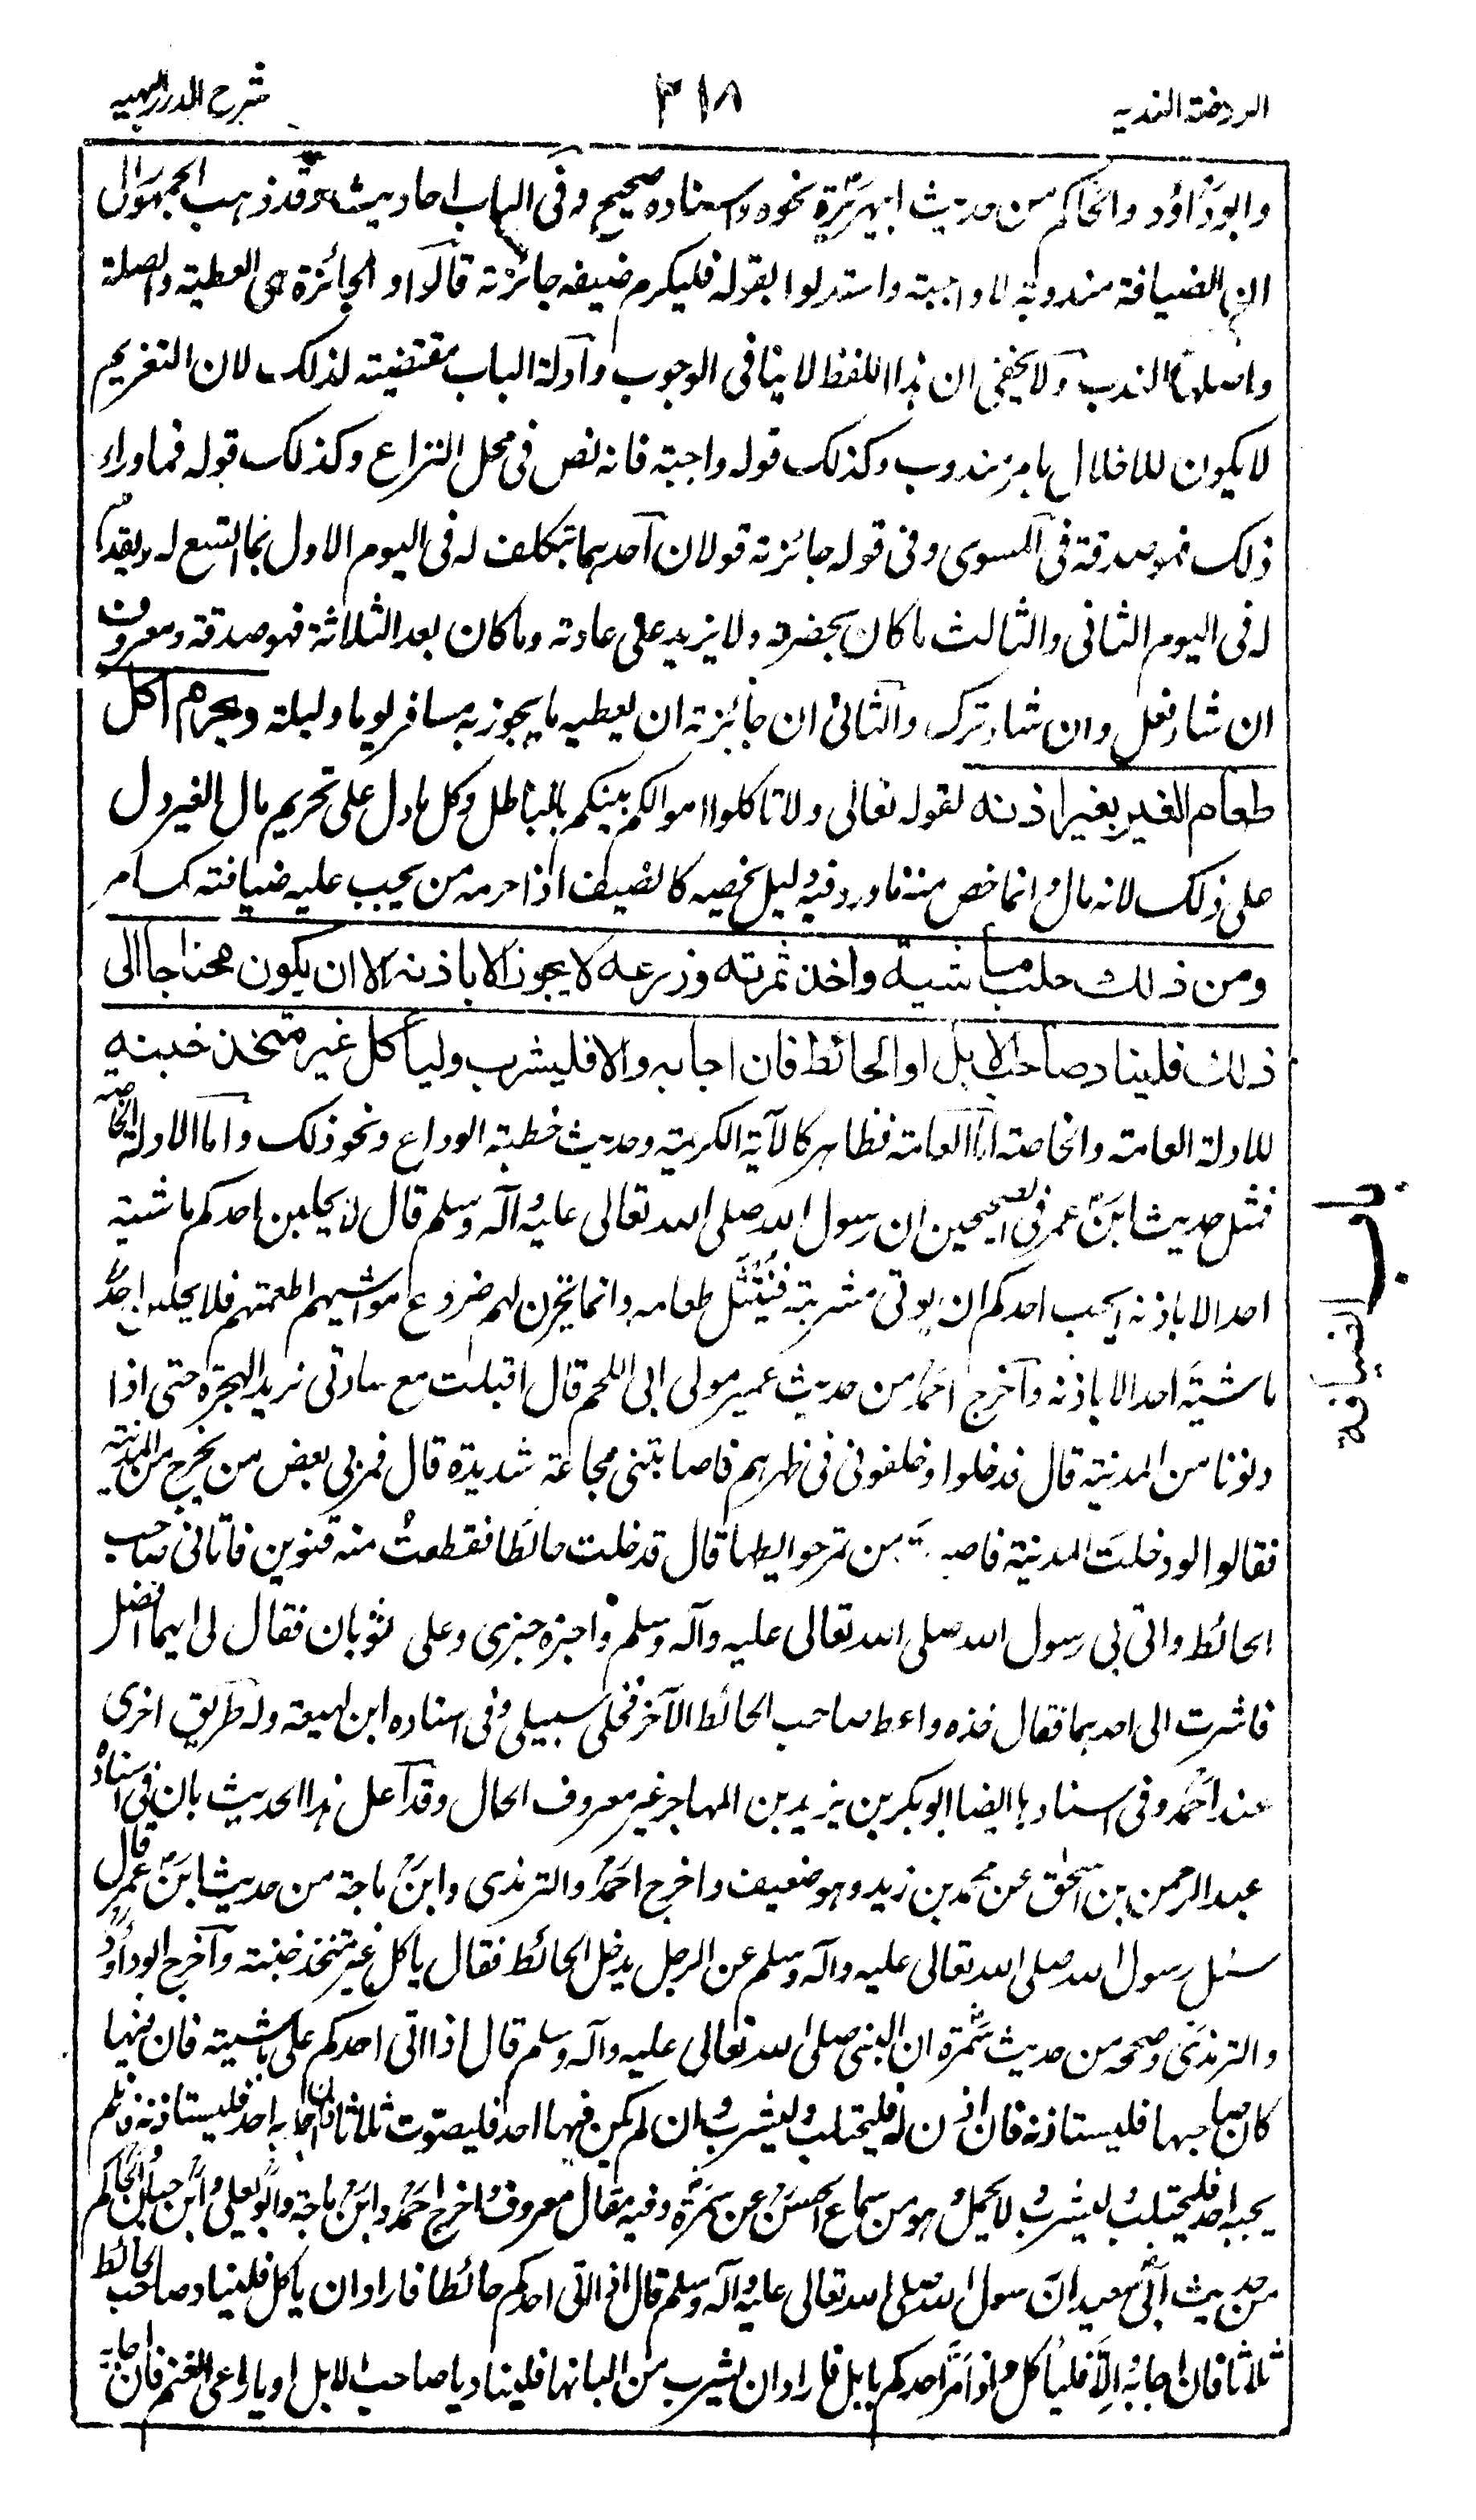 الروضة الندية
٣١٨
شرح الدرر البهية
وابوداؤد والحاكم من حديث ابيهريرة نحوه واسناده صحيح وفى الباب احاديث وقد ذهب الجمهور الى
ان الضيافة مندوبة لا واجبة واستدلوا بقوله فليكرم ضيفه جائزته قالوا والجائزة هى العطية والصلة
واصلها الندب ولا يخفى ان هذا اللفظ لا ينافى الوجوب وادلة الباب مقتضية لذلك لان التغريم
لا يكون للاخلال بامر مندوب وكذلك قوله واجبة فانه نص فى محل النزاع وكذلك قوله فما وراء
ذلك فهو صدقة فى المسوى وفى قوله جائزته قولان احدهما يتكلف له فى اليوم الاول بما اتسع له ويقدم
له فى اليوم الثانى والثالث ما كان بحضرته ولا يزيد على عادته وما كان بعد الثلاثة فهو صدقة ومعروف
ان شاء فعل وان شاء ترك والثانى ان جائزته ان يعطيه ما يجوز به مسافر يوما وليلة ويحرم اكل
طعام الغير بغير اذنه لقوله تعالى ولا تاكلوا اموالكم بينكم بالباطل وكل ما دل على تحريم مال الغير دل
على ذلك لانه مال وانما خص منه ما ورد فيه دليل يخصه كالضيف اذا حرمه من يجب عليه ضيافته كما مر
ومن ذلك حلب ماشية واخذ ثمرته وزرعه لا يجوز الا باذنه الا ان يكون محتاجا الى
ذلك فليناد صاحب الابل او الحائط فان اجابه والا فليشرب ولياكل غير متخذ خبنة
للادلة العامة والخاصة اما العامة فظاهر كالآية الكريمة وحديث خطبة الوداع ونحو ذلك واما الادلة الخاصة
فمثل حديث ابن عمر فى الصحيحين ان رسول الله صلى الله تعالى عليه وآله وسلم قال لا يحلبن احدكم ماشية
احد الا باذنه ايحب احدكم ان يوتى مشربته فينتثل طعامه وانما تخزن لهم ضروع مواشيهم اطعمتهم فلا يحلبن احد
ماشية احد الا باذنه واخرج احمد من حديث عمير مولى ابى اللحم قال اقبلت مع سادتى نريد الهجرة حتى اذا
دنونا من المدينة قال فدخلوا وخلفونى فى ظهرهم فاصابتنى مجاعة شديدة قال فمر بى بعض من يخرج من المدينة
فقالوا لو دخلت المدينة فاصبت من تمر حوايطها قال فدخلت حائطا فقطعت منه قنوين فاتانى صاحب
الحائط واتى بى رسول الله صلى الله تعالى عليه وآله وسلم واخبره خبرى وعلى ثوبان فقال لى ايهما افضل
فاشرت الى احدهما فقال خذه واعط صاحب الحائط الآخر فخلى سبيلى وفى اسناده ابن لهيعة وله طريق اخرى
عند احمد وفى اسنادها ايضا ابوبكر بن يزيد بن المهاجر غير معروف الحال وقد اعل هذا الحديث بان فى اسناده
عبد الرحمن بن اسحق عن محمد بن زيد وهو ضعيف واخرج احمد والترمذى وابن ماجة من حديث ابن عمر قال
سئل رسول الله صلى الله تعالى عليه وآله وسلم عن الرجل يدخل الحائط فقال ياكل غير متخذ خبنة واخرج ابوداؤد
والترمذى وصححه من حديث سمرة ان النبى صلى الله تعالى عليه وآله وسلم قال اذا اتى احدكم على ماشية فان فيها
كان صاحبها فليستاذنه فان اذن له فليحتلب وليشرب وان لم يكن فيها احد فليصوت ثلاثا فان اجابه احد فليستاذنه فان لم
يجبه احد فليحتلب وليشرب ولا يحمل وهو من سماع الحسن عن سمرة وفيه مقال معروف واخرج احمد وابن ماجة وابو يعلى وابن حبان والحاكم
من حديث ابى سعيد ان رسول الله صلى الله تعالى عليه وآله وسلم قال اذا اتى احدكم حائطا فاراد ان ياكل فليناد صاحب الحائط
ثلاثا فان اجابه والا فلياكل واذا مر احدكم بابل فاراد ان يشرب من البانها فليناد يا صاحب الابل او يا راعى الغنم فان اجابه
باب الضيافة